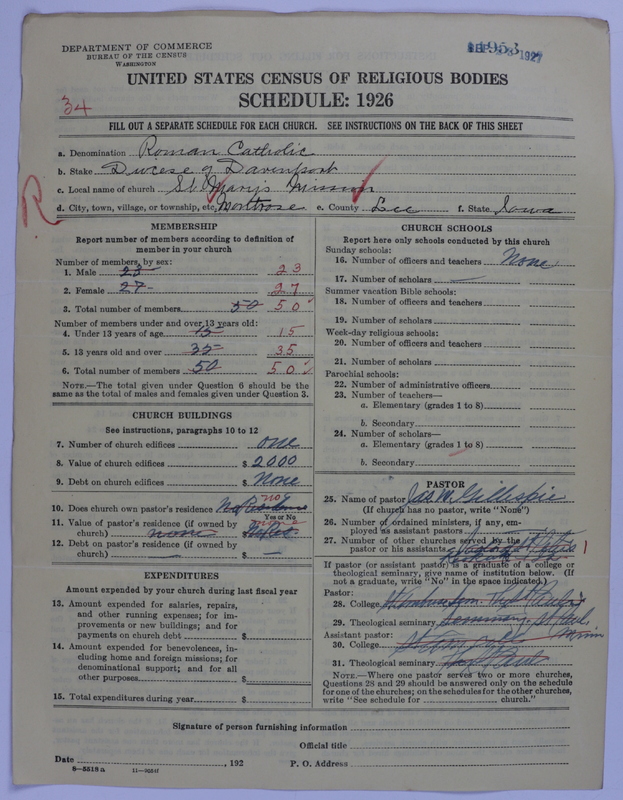 DEPARTMENT OF COMMERCE
BUREAU OF THE CENSUS
WASHINGTON
1927
UNITED STATES CENSUS OF RELIGIOUS BODIES
SCHEDULE: 1926
34
FILL OUT A SEPARATE SCHEDULE FOR EACH CHURCH. SEE INSTRUCTIONS ON THE BACK OF THIS SHEET
a. Denomination Roman Catholic
b. Stake Diocese of Davenport
c. Local name of church St Mary's Mission
d. City, town, village, or township, etc. Montrose e. County Lee f. State Iowa
R
MEMBERSHIP
Report number of members according to definition of
member in your church
Number of members, by sex:
1. Male 23 23
2. Female 27 27
3. Total number of members 50 50
Number of members under and over 13 years old:
4. Under 13 years of age 15 15
5. 13 years old and over 35 35
6. Total number of members 50 50
NOTE.—The total given under Question 6 should be the
same as the total of males and females given under Question 3.
CHURCH BUILDINGS
See instructions, paragraphs 10 to 12
7. Number of church edifices one
8. Value of church edifices $ 2000
9. Debt on church edifices $ None
10. Does church own pastor's residence no
Yes or No
11. Value of pastor's residence (if owned by
church) none $ none
12. Debt on pastor's residence (if owned by
church) — $ —
EXPENDITURES
Amount expended by your church during last fiscal year
13. Amount expended for salaries, repairs,
and other running expenses; for im-
provements or new buildings; and for
payments on church debt $
14. Amount expended for benevolences, in-
cluding home and foreign missions; for
denominational support; and for all
other purposes $
15. Total expenditures during year $
CHURCH SCHOOLS
Report here only schools conducted by this church
Sunday schools:
16. Number of officers and teachers None
17. Number of scholars —
Summer vacation Bible schools:
18. Number of officers and teachers
19. Number of scholars
Week-day religious schools:
20. Number of officers and teachers
21. Number of scholars
Parochial schools:
22. Number of administrative officers
23. Number of teachers—
a. Elementary (grades 1 to 8)
b. Secondary
24. Number of scholars—
a. Elementary (grades 1 to 8)
b. Secondary
PASTOR
25. Name of pastor Jas M. Gillespie
(If church has no pastor, write "None")
26. Number of ordained ministers, if any, em-
ployed as assistant pastors
27. Number of other churches served by the
pastor or his assistants 1
If pastor (or assistant pastor) is a graduate of a college or
theological seminary, give name of institution below. (If
not a graduate, write "No" in the space indicated.)
Pastor:
28. College
29. Theological seminary Seminary St Paul
Minn
Assistant pastor:
30. College
31. Theological seminary
NOTE.—Where one pastor serves two or more churches,
Questions 28 and 29 should be answered only on the schedule
for one of the churches; on the schedules for the other churches,
write "See schedule for church."
Signature of person furnishing information
Official title
Date , 192 P. O. Address
8—5518 a